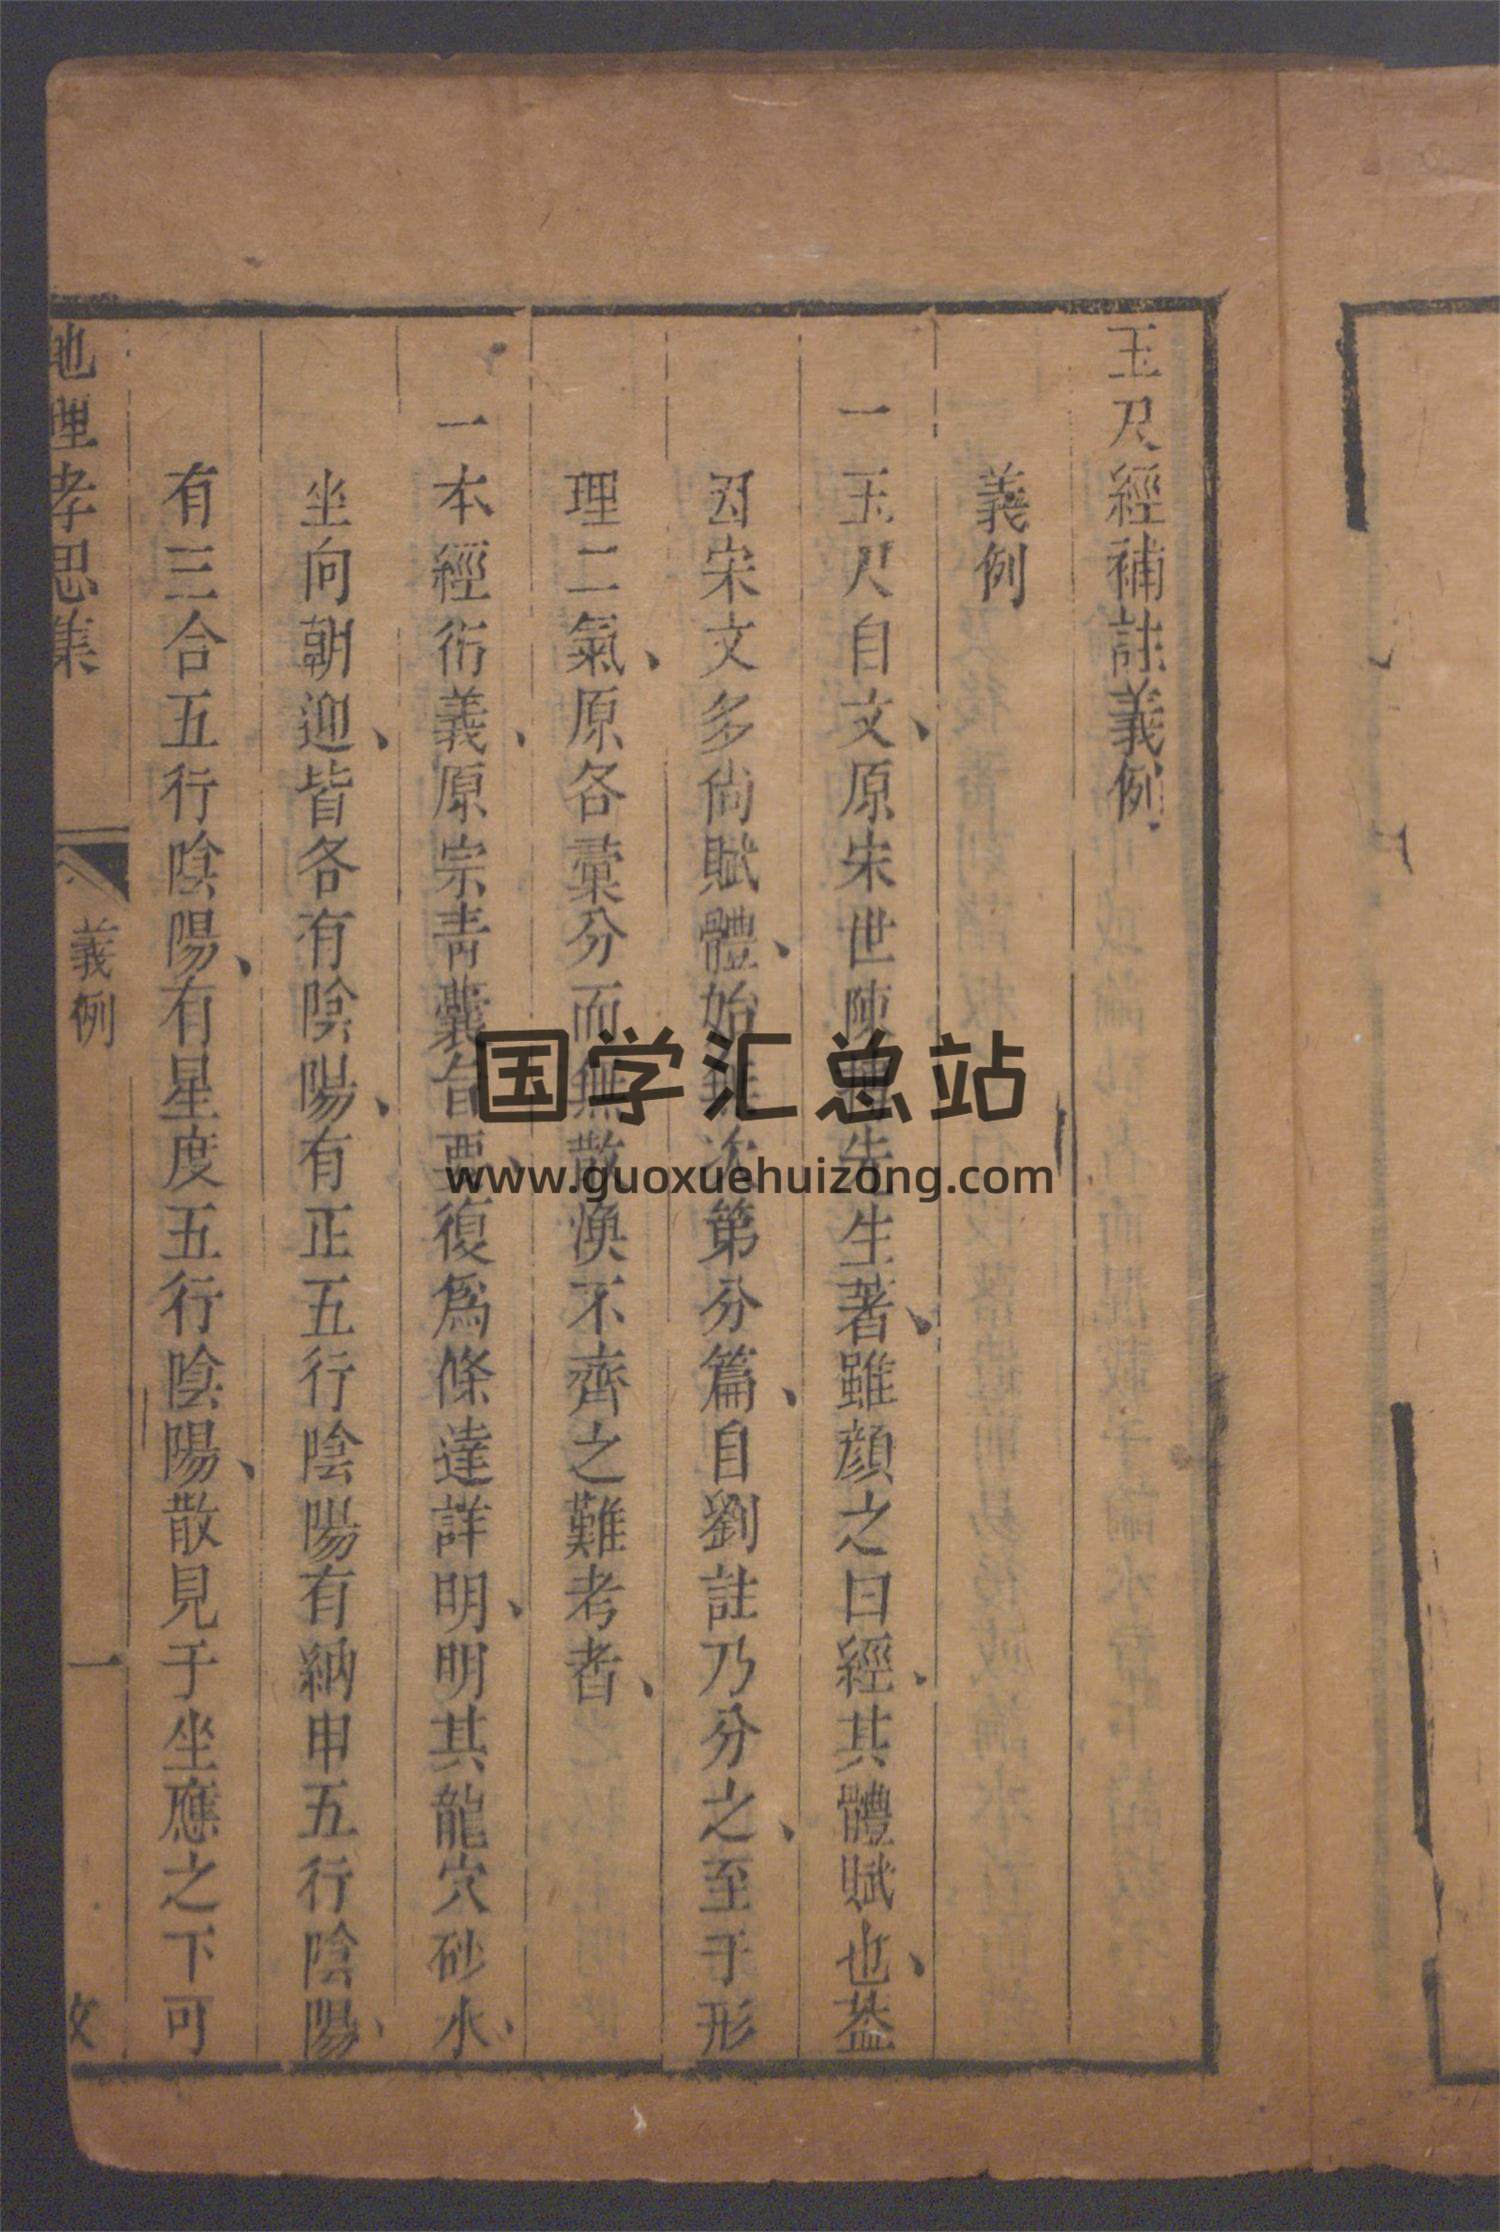 玉尺經補註義例
義例
一玉尺自文原宋世陳先生著雖顔之曰經其體賦也葢
因宋文多尚賦體始無次第分篇自劉註乃分之至于形
理二氣原各彙分而無散渙不齊之難考者
一本經衍義原宗青囊旨要復爲條達詳明明其龍穴砂水
坐向朝迎皆各有陰陽有正五行陰陽有納甲五行陰陽
有三合五行陰陽有星度五行陰陽散見于坐應之下可
地理孝思集
義例
一
文
国学汇总站
www.guoxuehuizong.com